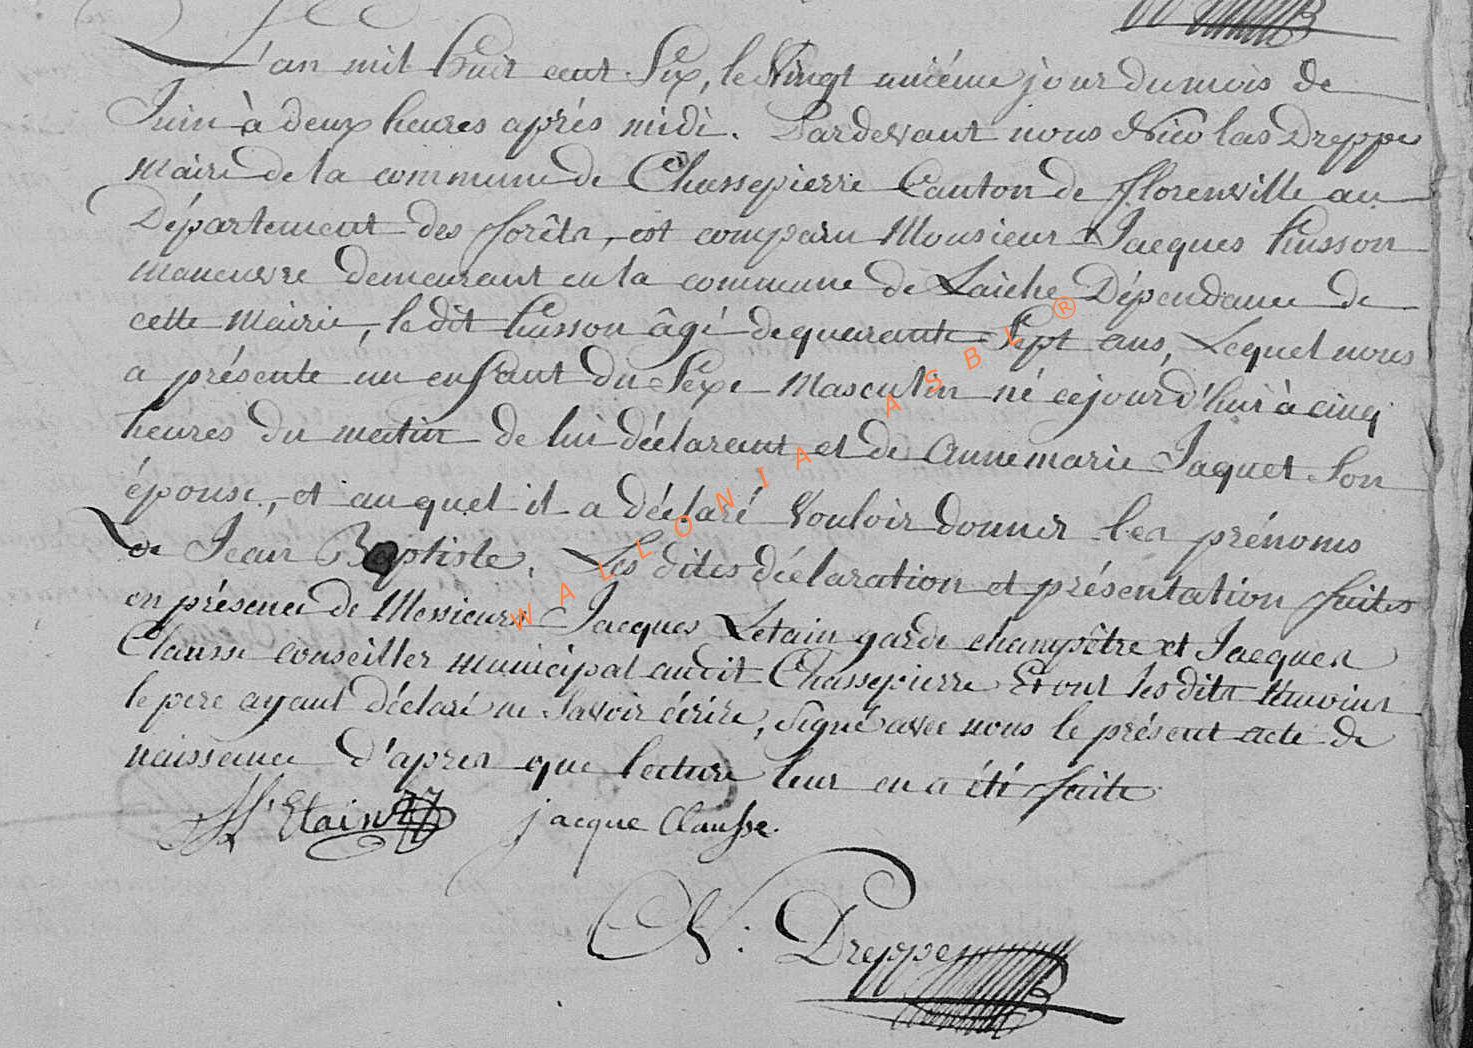 L'an mil huit cent Six, le Vingt uniéme jour du mois de
Juin à deux heures aprés midi. Pardevant nous Nicolas Dreppe
Maire de la commune de Chassepierre Canton de florenville au
Département des forêts, est comparu Monsieur Jacques husson
manœuvre demeurant en la commune de Laiche Dépendance de
cette Mairie, le dit husson âgé de quarante Sept ans, Lequel nous
a présenté un enfant du Sexe Masculin né cejourd'hui à cinq
heures du matin de lui déclarant et de anne marie Jaquet Son
épouse, et auquel il a déclaré Vouloir donner les prénoms
de Jean Baptiste, Les dites déclaration et présentation faites
en présence de Messieurs Jacques Letain garde champêtre et Jacques
Clausse conseiller municipal audit Chassepierre Et ont les dits témoins
le pere ayant déclaré ne Savoir écrire, Signé avec nous le présent acte de
naissance d'apres que lecture leur en a été faite
Etain jacque Clausse.
N: Dreppe
WALLONIA ASBL ®